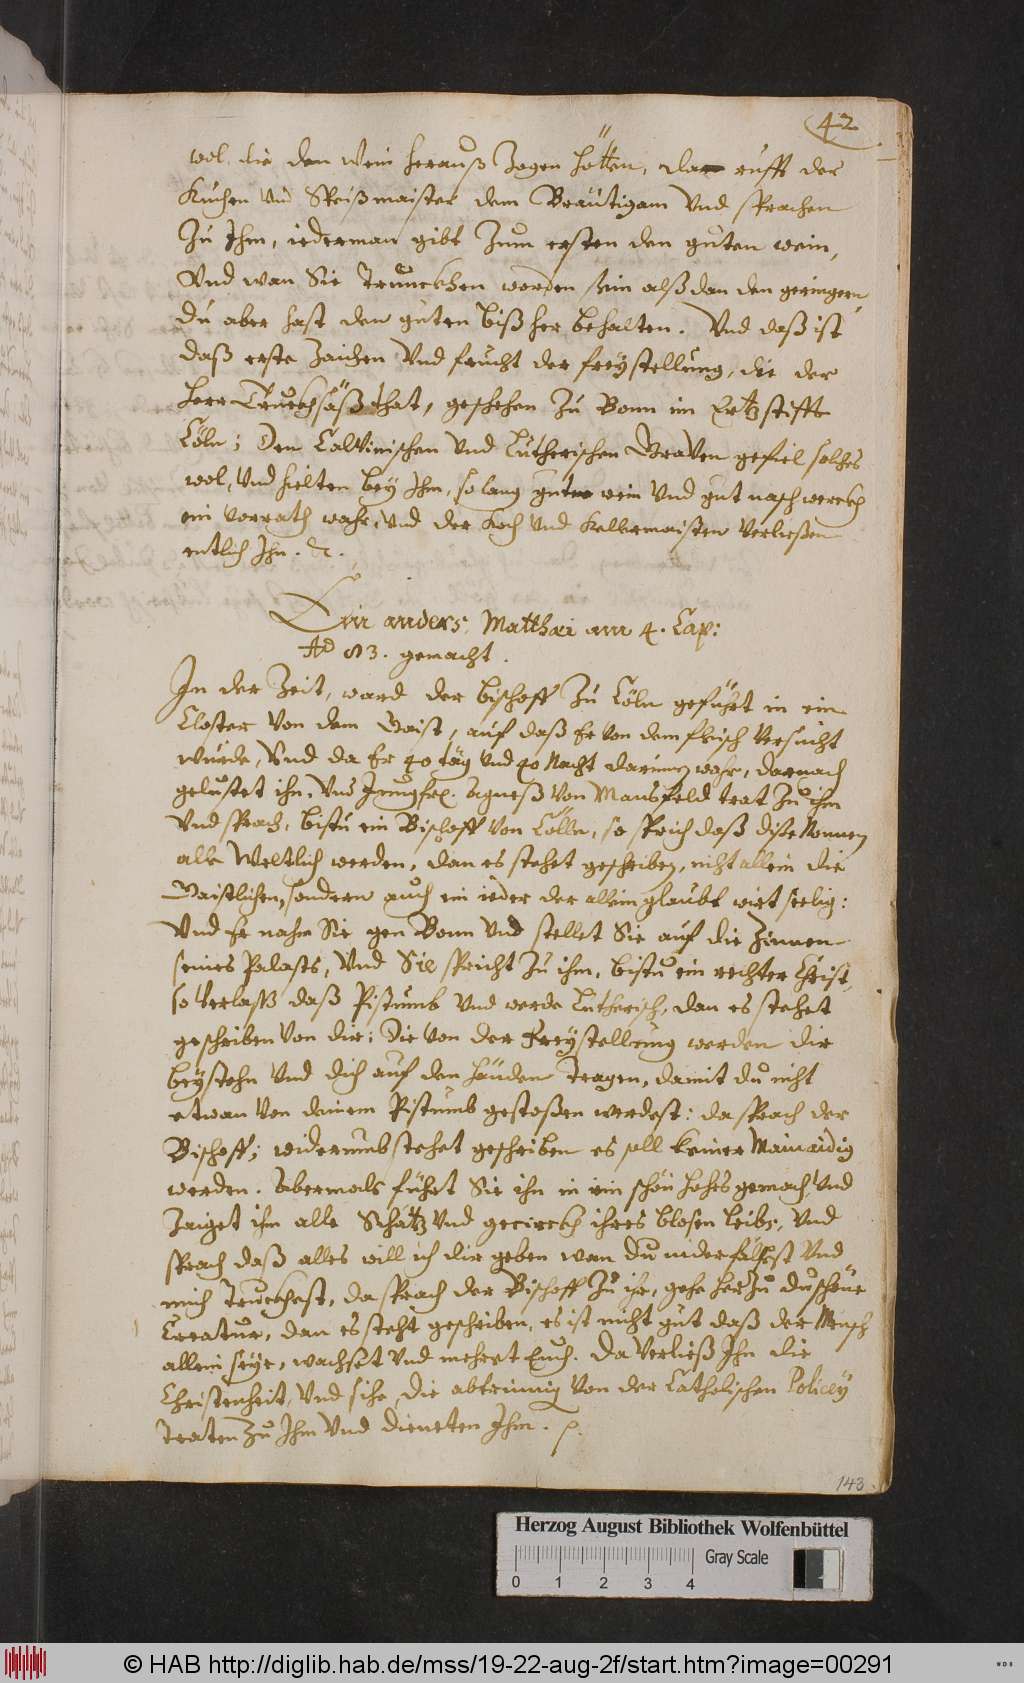 42
wol, die den Wein herauß Zogen hötten, da rufft der
Kuchen und Speißmaister dem Bräutigam Vnd sprachen
Zu Ihm, iederman gibt Zum ersten den guten wein,
Vnd wan Sie Trunckhen worden sein alß dan den geringern
du aber hast den guten biß her behalten. Vnd daß ist
daß erste Zaichen Vnd frucht der freystellung, die der
Herr Truckhsäß that, geschehen Zu Bonn im Ertzstifft
Cöln; Den Calvinischen Vnd Lutherischen Graven gefiel solches
wol, Vnd hielten bey Ihm, so lang guter wein Vnd gut naschwerckh
ein Vorrath wahr, Vnd der Koch Vnd Kellermaister Verließen
entlich Ihn.
Ein anders, Matthæi am 4. Cap:
Aō 83. gemacht.
In der Zeit, ward der bischoff Zu Cöln geführt in ein
Closter Von dem Gaist, auf daß Er Von dem fleisch Versucht
wurde, Vnd da Er 40 täg Vnd 40 Nacht darinnen wahr, darnach
gelustet ihn. Vnd Jungfr. Agneß Von Mansfeld trat Zu ihm
Vnd sprach, bistu ein Bischoff Von Cölln, so sprich daß diße Nonnen
alle Weltlich werden, dan es stehet geschriben, nicht allein die
Gaistlichen, sondern auch ein ieder der allein glaubt wirt seelig:
Vnd Er nahm Sie gen Bonn Vnd stellet Sie auf die Zinnen
seines Palasts, Vnd Sie spricht Zu ihm, bistu ein rechter Christ,
so Verlaß daß Pistumb Vnd werde Lutherisch, dan es stehet
geschriben Von dir: Die Von der Freystellung werden dir
beystehn Vnd dich auf den händen tragen, damit du nicht
etwan Von deinem Pistumb gestoßen werdest: da sprach der
Bischoff; widerumb stehet geschriben es soll keiner Mainaidig
werden. Abermals führt Sie ihn in ein schön hohes gemach, Vnd
Zaiget ihm alle Schätz Vnd gezirckh ihres blosen leibs, Vnd
sprach daß alles will ich dir geben wan du niderfälst Vnd
mich Truckhest, da sprach der Bischoff Zu ihr, gehe her Zu du schöne
Creatur, dan es steht geschriben, es ist nicht gut daß der Mensch
allein seye, wachset Vnd mehret Euch. Da Verließ Ihn die
Christenheit, Vnd sihe, die abtrinnig Von der Catholischen Policey
traten Zu Ihm Vnd dieneten Ihm.
143
Herzog August Bibliothek Wolfenbüttel
Gray Scale
0 1 2 3 4
© HAB http://diglib.hab.de/mss/19-22-aug-2f/start.htm?image=00291